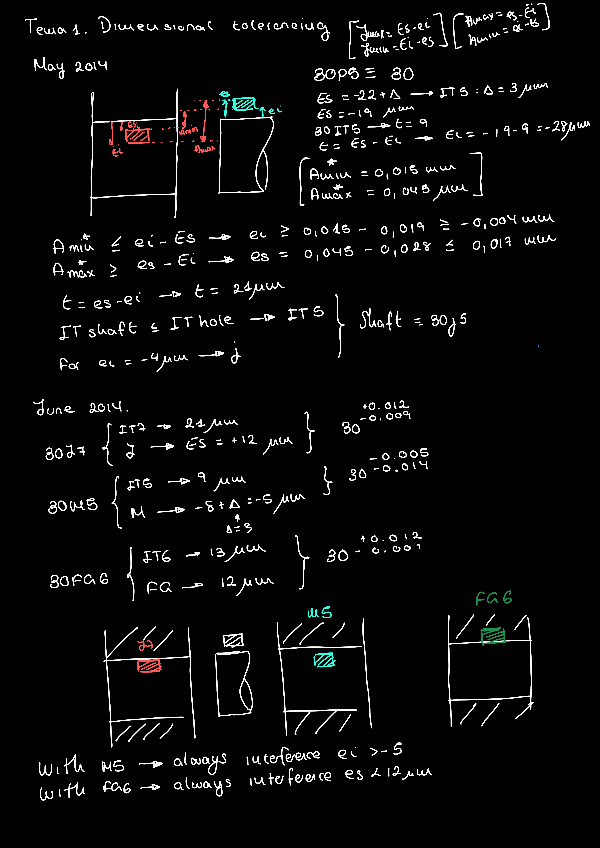 Tema 1. Dimensional tolerancing [Jmax = Es - ei [Amax = es - Ei
Jmin = Ei - es] Amin = ei - Es]
May 2014
30P5 ≡ 30
Es = -22 + Δ → IT5 : Δ = 3 μm
Es = -19 μm
30 IT5 → t = 9
t = Es - Ei → Ei = -19 - 9 = -28 μm
es
ei
Es
Ei
Amin
Amax
[A*min = 0,015 mm
A*max = 0,045 μm]
A*min ≤ ei - Es → ei ≥ 0,015 - 0,019 ≥ -0,004 mm
A*max ≥ es - Ei → es = 0,045 - 0,028 ≤ 0,017 mm
t = es - ei → t = 21 μm
IT shaft ≤ IT hole → IT5 } Shaft = 30j5
For ei = -4 μm → j
June 2014.
30J7 { IT7 → 21 μm
J → ES = +12 μm } 30 +0.012 -0.009
30M5 { IT5 → 9 μm
M → -8 + Δ = -5 μm } 30 -0.005 -0.014
Δ = 3
30FG6 { IT6 → 13 μm
FG → 12 μm } 30 +0.012 -0.001
J7
M5
FG6
With M5 → always interference ei > -5
With FG6 → always interference es < 12 μm